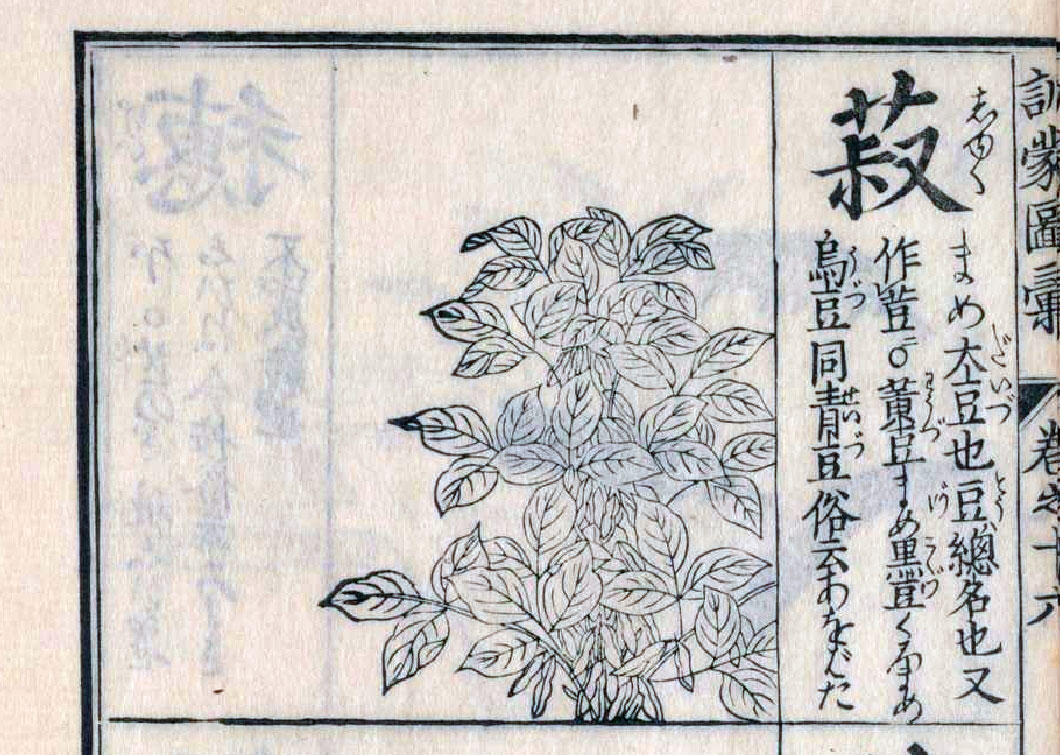 訓蒙圖彙 卷之十六
菽 しゆく
まめ大豆也豆總名也又
作荳○豆まめ黒豆くろまめ
烏豆同青豆俗云あをばた